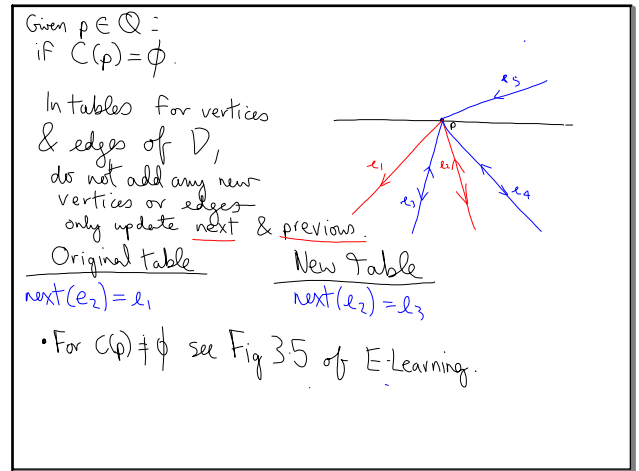 Given p ∈ Q :
if C(p) = ϕ.
In tables for vertices
& edges of D,
do not add any new
vertices or edges
only update next & previous.
e5
p
e1
e3
e2
e4
Original table
New Table
next(e2) = e1
next(e2) = e3
• For C(p) ≠ ϕ see Fig 3.5 of E-Learning.